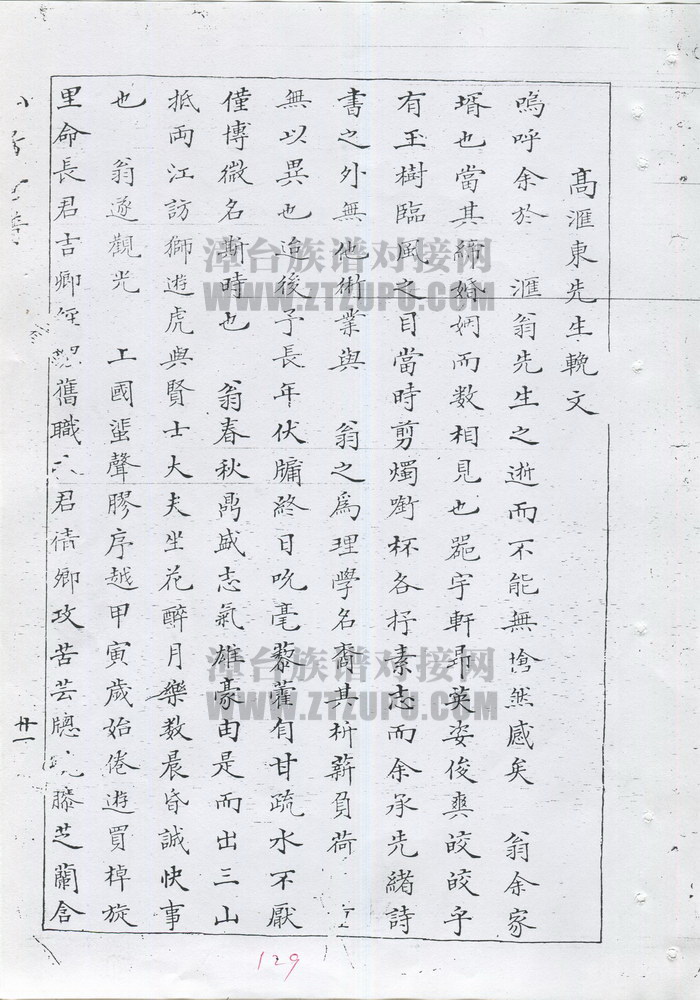 高滙東先生輓文
嗚呼余於 滙翁先生之逝而不能無愴然感矣 翁余家
壻也當其締婚姻而数相見也器宇軒昂英姿俊爽皎皎乎
有玉樹臨風之目當時剪燭啣杯各抒素志而余承先緒詩
書之外無他術業與 翁之爲理學名裔其析薪負荷
無以異也迨後予長年伏牖終日吮毫藜藿自甘疏水不厭
僅博微名斯時也 翁春秋鼎盛志氣雄豪由是而出三山
抵两江訪獅遊虎與賢士大夫坐花醉月樂数晨昏誠快事
也 翁遂觀光 上國蜚聲膠序越甲寅歲始倦遊買棹旋
里命長君吉卿 舊職 君倩卿攻苦芸牕 滕芝蘭含
廿一
漳台族谱对接网
WWW.ZTZUPU.COM
漳台族谱对接网
WWW.ZTZUPU.COM
129